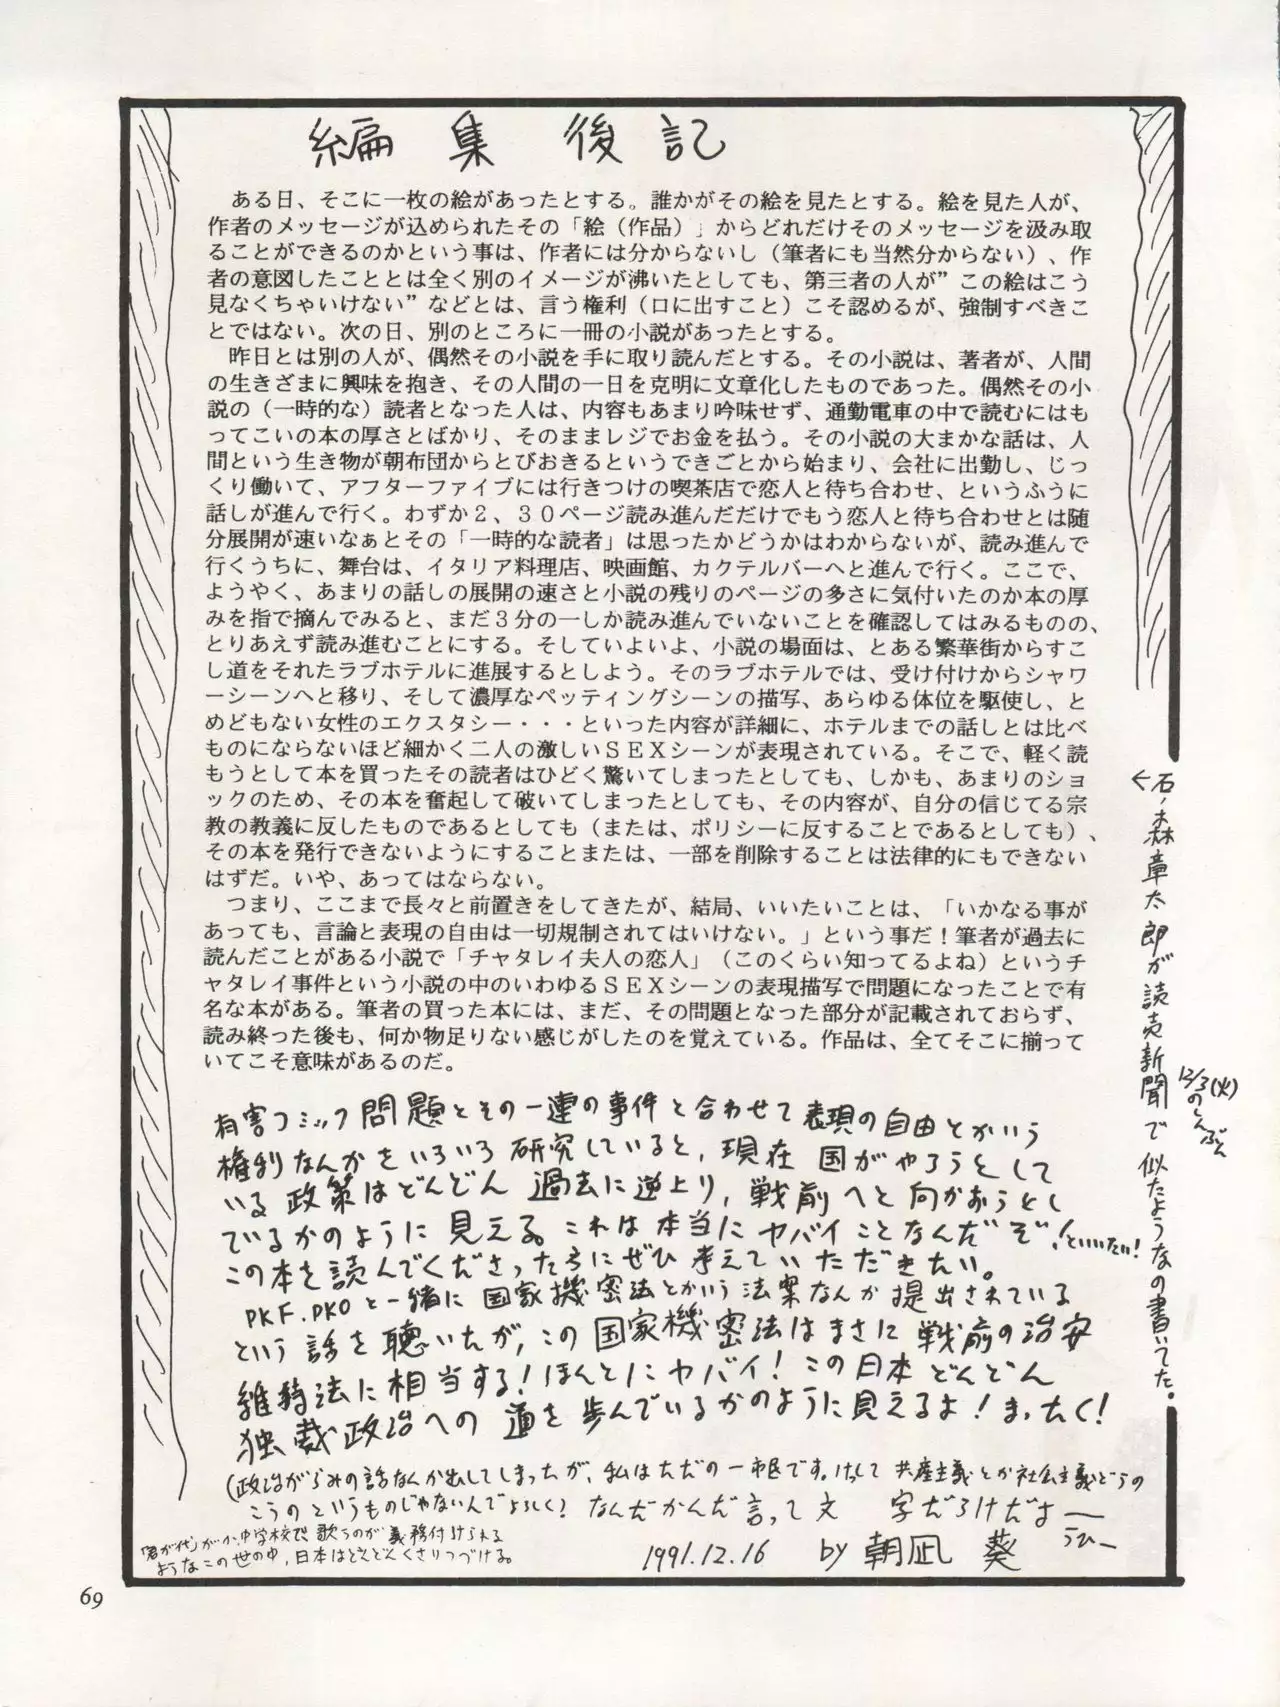 編集後記
　ある日、そこに一枚の絵があったとする。誰かがその絵を見たとする。絵を見た人が、
作者のメッセージが込められたその「絵（作品）」からどれだけそのメッセージを汲み取
ることができるのかという事は、作者には分からないし（筆者にも当然分からない）、作
者の意図したこととは全く別のイメージが沸いたとしても、第三者の人が”この絵はこう
見なくちゃいけない”などとは、言う権利（口に出すこと）こそ認めるが、強制すべきこ
とではない。次の日、別のところに一冊の小説があったとする。
　昨日とは別の人が、偶然その小説を手に取り読んだとする。その小説は、著者が、人間
の生きざまに興味を抱き、その人間の一日を克明に文章化したものであった。偶然その小
説の（一時的な）読者となった人は、内容もあまり吟味せず、通勤電車の中で読むにはも
ってこいの本の厚さとばかり、そのままレジでお金を払う。その小説の大まかな話は、人
間という生き物が朝布団からとびおきるというできごとから始まり、会社に出勤し、じっ
くり働いて、アフターファイブには行きつけの喫茶店で恋人と待ち合わせ、というふうに
話しが進んで行く。わずか２、３０ページ読み進んだだけでもう恋人と待ち合わせとは随
分展開が速いなぁとその「一時的な読者」は思ったかどうかはわからないが、読み進んで
行くうちに、舞台は、イタリア料理店、映画館、カクテルバーへと進んで行く。ここで、
ようやく、あまりの話しの展開の速さと小説の残りのページの多さに気付いたのか本の厚
みを指で摘んでみると、まだ３分の一しか読み進んでいないことを確認してはみるものの、
とりあえず読み進むことにする。そしていよいよ、小説の場面は、とある繁華街からすこ
し道をそれたラブホテルに進展するとしよう。そのラブホテルでは、受け付けからシャワ
ーシーンへと移り、そして濃厚なペッティングシーンの描写、あらゆる体位を駆使し、と
めどもない女性のエクスタシー・・・といった内容が詳細に、ホテルまでの話しとは比べ
ものにならないほど細かく二人の激しいＳＥＸシーンが表現されている。そこで、軽く読
もうとして本を買ったその読者はひどく驚いてしまったとしても、しかも、あまりのショ
ックのため、その本を奮起して破いてしまったとしても、その内容が、自分の信じてる宗
教の教義に反したものであるとしても（または、ポリシーに反することであるとしても）、
その本を発行できないようにすることまたは、一部を削除することは法律的にもできない
はずだ。いや、あってはならない。
　つまり、ここまで長々と前置きをしてきたが、結局、いいたいことは、「いかなる事が
あっても、言論と表現の自由は一切規制されてはいけない。」という事だ！筆者が過去に
読んだことがある小説で「チャタレイ夫人の恋人」（このくらい知ってるよね）というチ
ャタレイ事件という小説の中のいわゆるＳＥＸシーンの表現描写で問題になったことで有
名な本がある。筆者の買った本には、まだ、その問題となった部分が記載されておらず、
読み終った後も、何か物足りない感じがしたのを覚えている。作品は、全てそこに揃って
いてこそ意味があるのだ。
有害コミック問題とその一連の事件と合わせて表現の自由とかいう
権利なんかをいろいろ研究していると、現在国がやろうとして
いる政策はどんどん過去に逆上り、戦前へと向かおうとし
ているかのように見える。これは本当にヤバイことなんだぞ！といいたい！
この本を読んでくださった方にぜひ考えていただきたい。
PKF.PKOと一緒に国家機密法とかいう法案なんか提出されている
という話を聴いたが、この国家機密法はまさに戦前の治安
維持法に相当する！ほんとにヤバイ！この日本どんどん
独裁政治への道を歩んでいるかのように見えるよ！まったく！
（政治がらみの話なんか出してしまったが、私はただの一市民です。けっして共産主義とか社会主義どうの
こうのというものじゃないんでよろしく！なんだかんだ言って文字だらけだよー
うひー
「君が代」がか、中学校で歌うのが義務付けられる
ようなこの世の中、日本はどんどんくさりつづける。
1991.12.16 by 朝凪 葵
←石ノ森章太郎が読売新聞で似たようなの書いてた。
12/3(火)のしんぶん
69